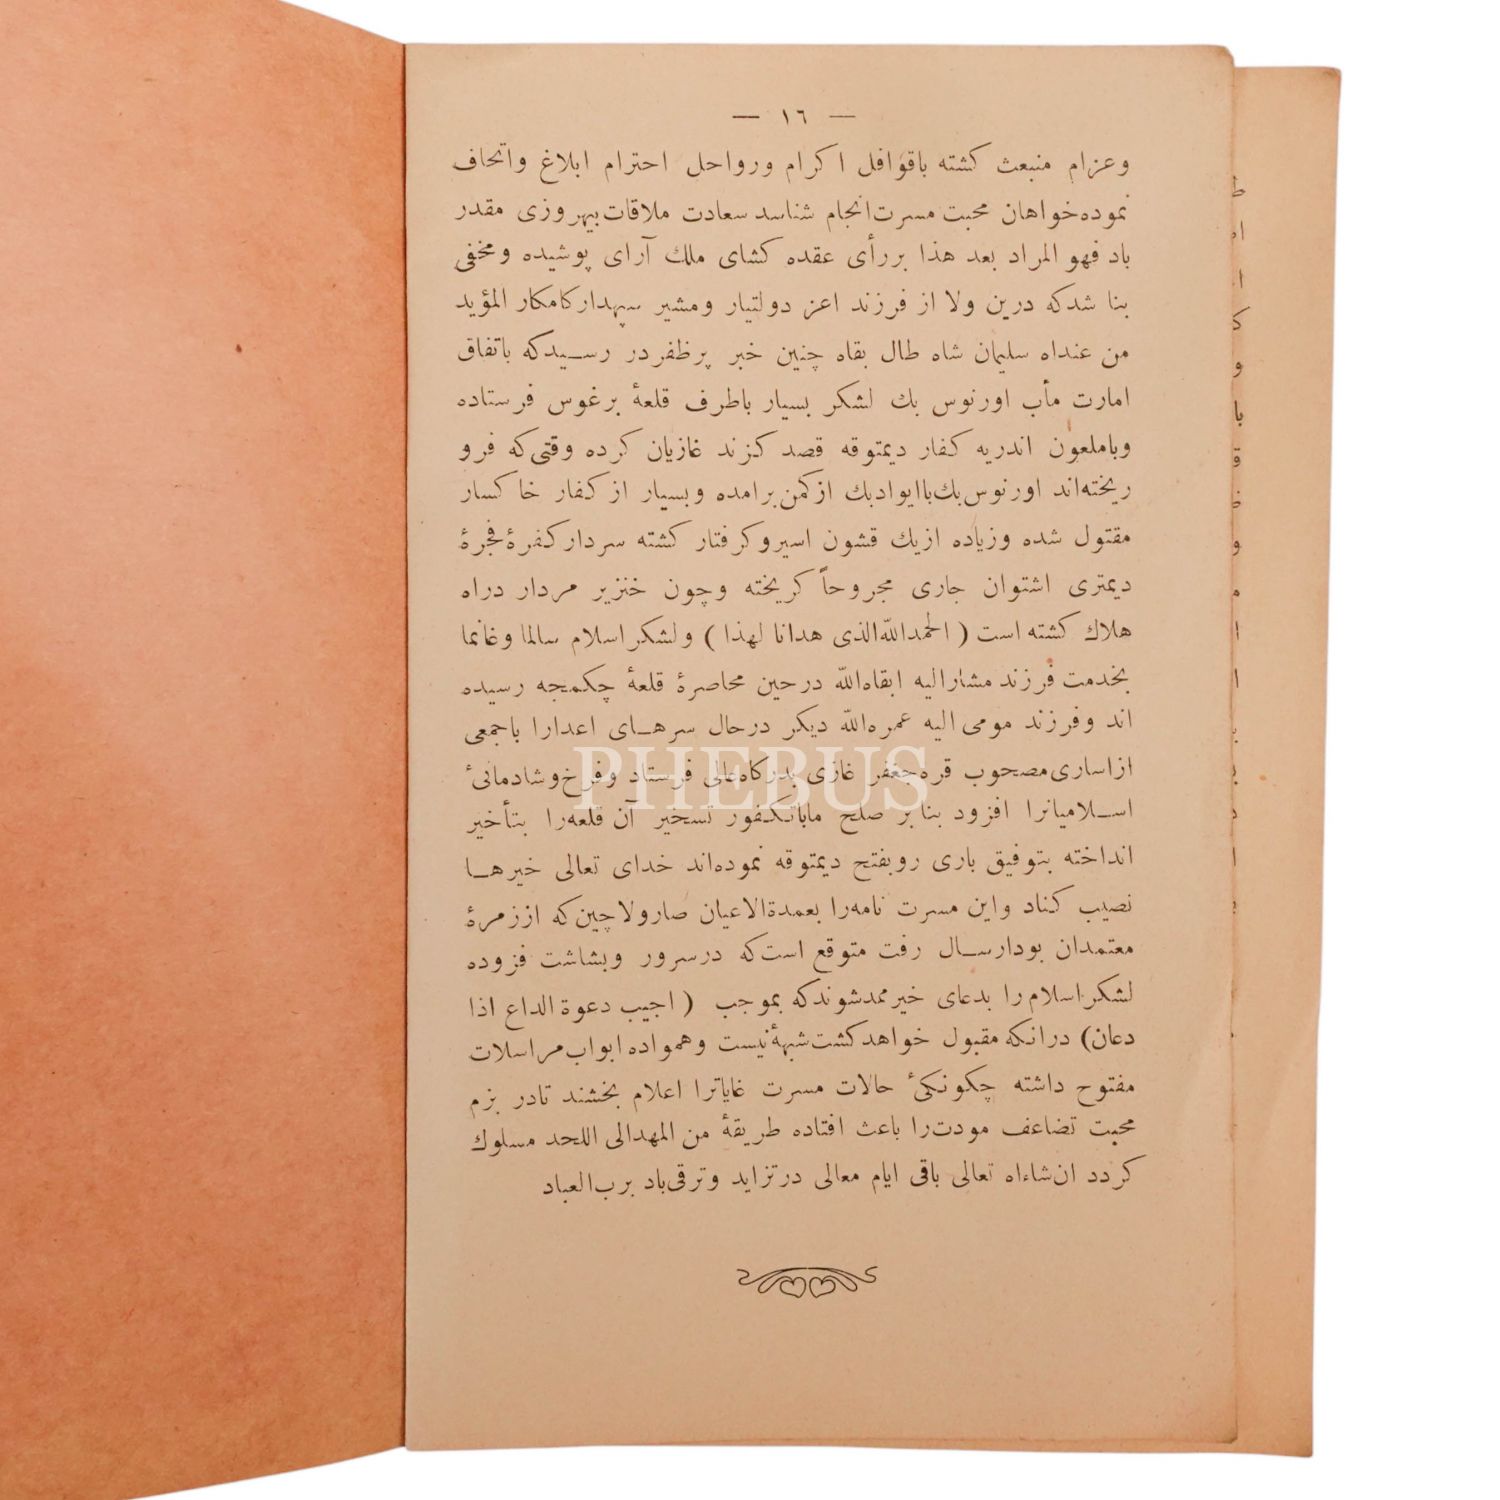 — ١٦ —
وعزام منبعث كشته باقوافل اكرام ورواحل احترام ابلاغ واتحاف
نموده خواهان محبت مسرت‌انجام شناسد سعادت ملاقات بيهروزى مقدر
باد فهو المراد بعد هذا بررأى عقده كشاى ملك آراى پوشيده ومخفى
بنا شدكه درين ولا از فرزند اعز دولتيار ومشير سپهدار كامكار المؤيد
من عنداه سليمان شاه طال بقاه چنين خبر پرظفر در رسيدكه باتفاق
امارت مأب اورنوس بك لشكر بسيار باطرف قلعهٔ برغوس فرستاده
وباملعون اندريه كفار ديمتوقه قصد كزند غازيان كرده وقتى‌كه فرو
ريخته‌اند اورنوس بك باايواد بك ازكمن برامده وبسيار از كفار خاكسار
مقتول شده وزياده ازيك قشون اسير وكرفتار كشته سردار كفرهٔ فجرهٔ
ديمترى اشتوان جارى مجروحاً كريخته وچون خنزير مردار دراه
هلاك كشته است (الحمدالله الذى هدانا لهذا) ولشكر اسلام سالما وغانما
بخدمت فرزند مشاراليه ابقاه‌الله درحين محاصرهٔ قلعهٔ چكمجه رسيده
اند وفرزند مومى اليه عمره‌الله ديكر درحال سرهاى اعدارا باجمعى
ازاسارى مصحوب قره جعفر غازى بدركاه عالى فرستاد وفرخ وشادمانئ
اسلاميانرا افزود بنا بر صلح ماباتكفور تسخير آن قلعه‌را بتأخير
انداخته بتوفيق بارى روبفتح ديمتوقه نموده‌اند خداى تعالى خيرها
نصيب كناد واين مسرت نامه‌را بعمدة‌الاعيان صارولاچين كه اززمرهٔ
معتمدان بودارسال رفت متوقع است كه درسرور وبشاشت فزوده
لشكر اسلام را بدعاى خير ممدشوندكه بموجب (اجيب دعوة الداع اذا
دعان) درانكه مقبول خواهدكشت شبههٔ نيست وهمواده ابواب مراسلات
مفتوح داشته چكونكئ حالات مسرت غاياترا اعلام بخشند تادر بزم
محبت تضاعف مودت‌را باعث افتاده طريقهٔ من المهدالى اللحد مسلوك
كردد ان‌شاءاه تعالى باقى ايام معالى درتزايد وترقى باد برب العباد
PHEBUS